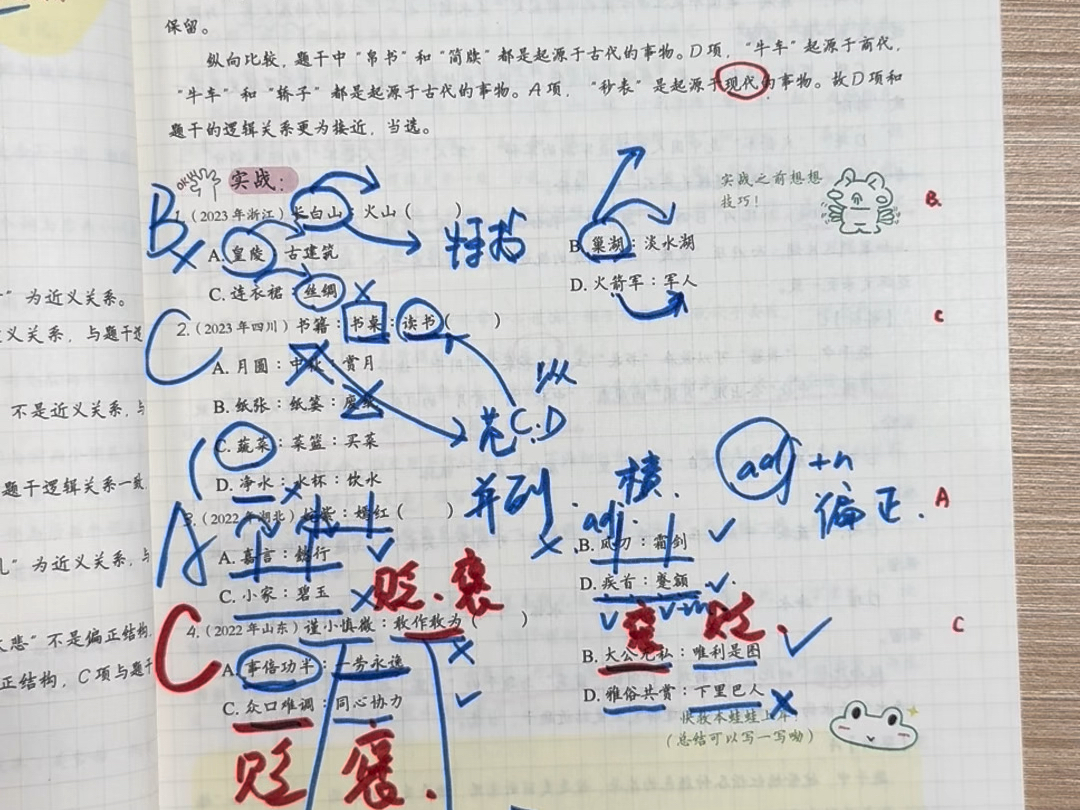 保留。
纵向比较，题干中“帛书”和“简牍”都是起源于古代的事物。D项，“牛车”起源于商代，
“牛车”和“轿子”都是起源于古代的事物。A项，“秒表”是起源于现代的事物。故D项和
题干的逻辑关系更为接近，当选。
实战：
实战之前想想
技巧！
B.
B
1.（2023年浙江）长白山：火山（ ）
A. 皇陵：古建筑
B. 巢湖：淡水湖
C. 连衣裙：丝绸
D. 火箭军：军人
C
2.（2023年四川）书籍：书桌：读书（ ）
C
A. 月圆：中秋：赏月
B. 纸张：纸篓：废纸
C. 蔬菜：菜篮：买菜
D. 净水：水杯：饮水
纵
C.D
并列. 横.
adj+n
偏正.
A
3.（2022年湖北）姹紫：嫣红（ ）
A
adj.
A. 嘉言：懿行
B. 风刀：霜剑
C. 小家：碧玉
D. 疾首：蹙额
贬.褒
C
4.（2022年山东）谨小慎微：敢作敢为（ ）
C
褒 贬.
A. 事倍功半：一劳永逸
B. 大公无私：唯利是图
C. 众口难调：同心协力
D. 雅俗共赏：下里巴人
（总结可以写一写呦）
贬 褒.
”为近义关系。
义关系，与题干逻
不是近义关系，与
题干逻辑关系一致
”为近义关系，与
悲”不是偏正结构
正结构，C项与题干